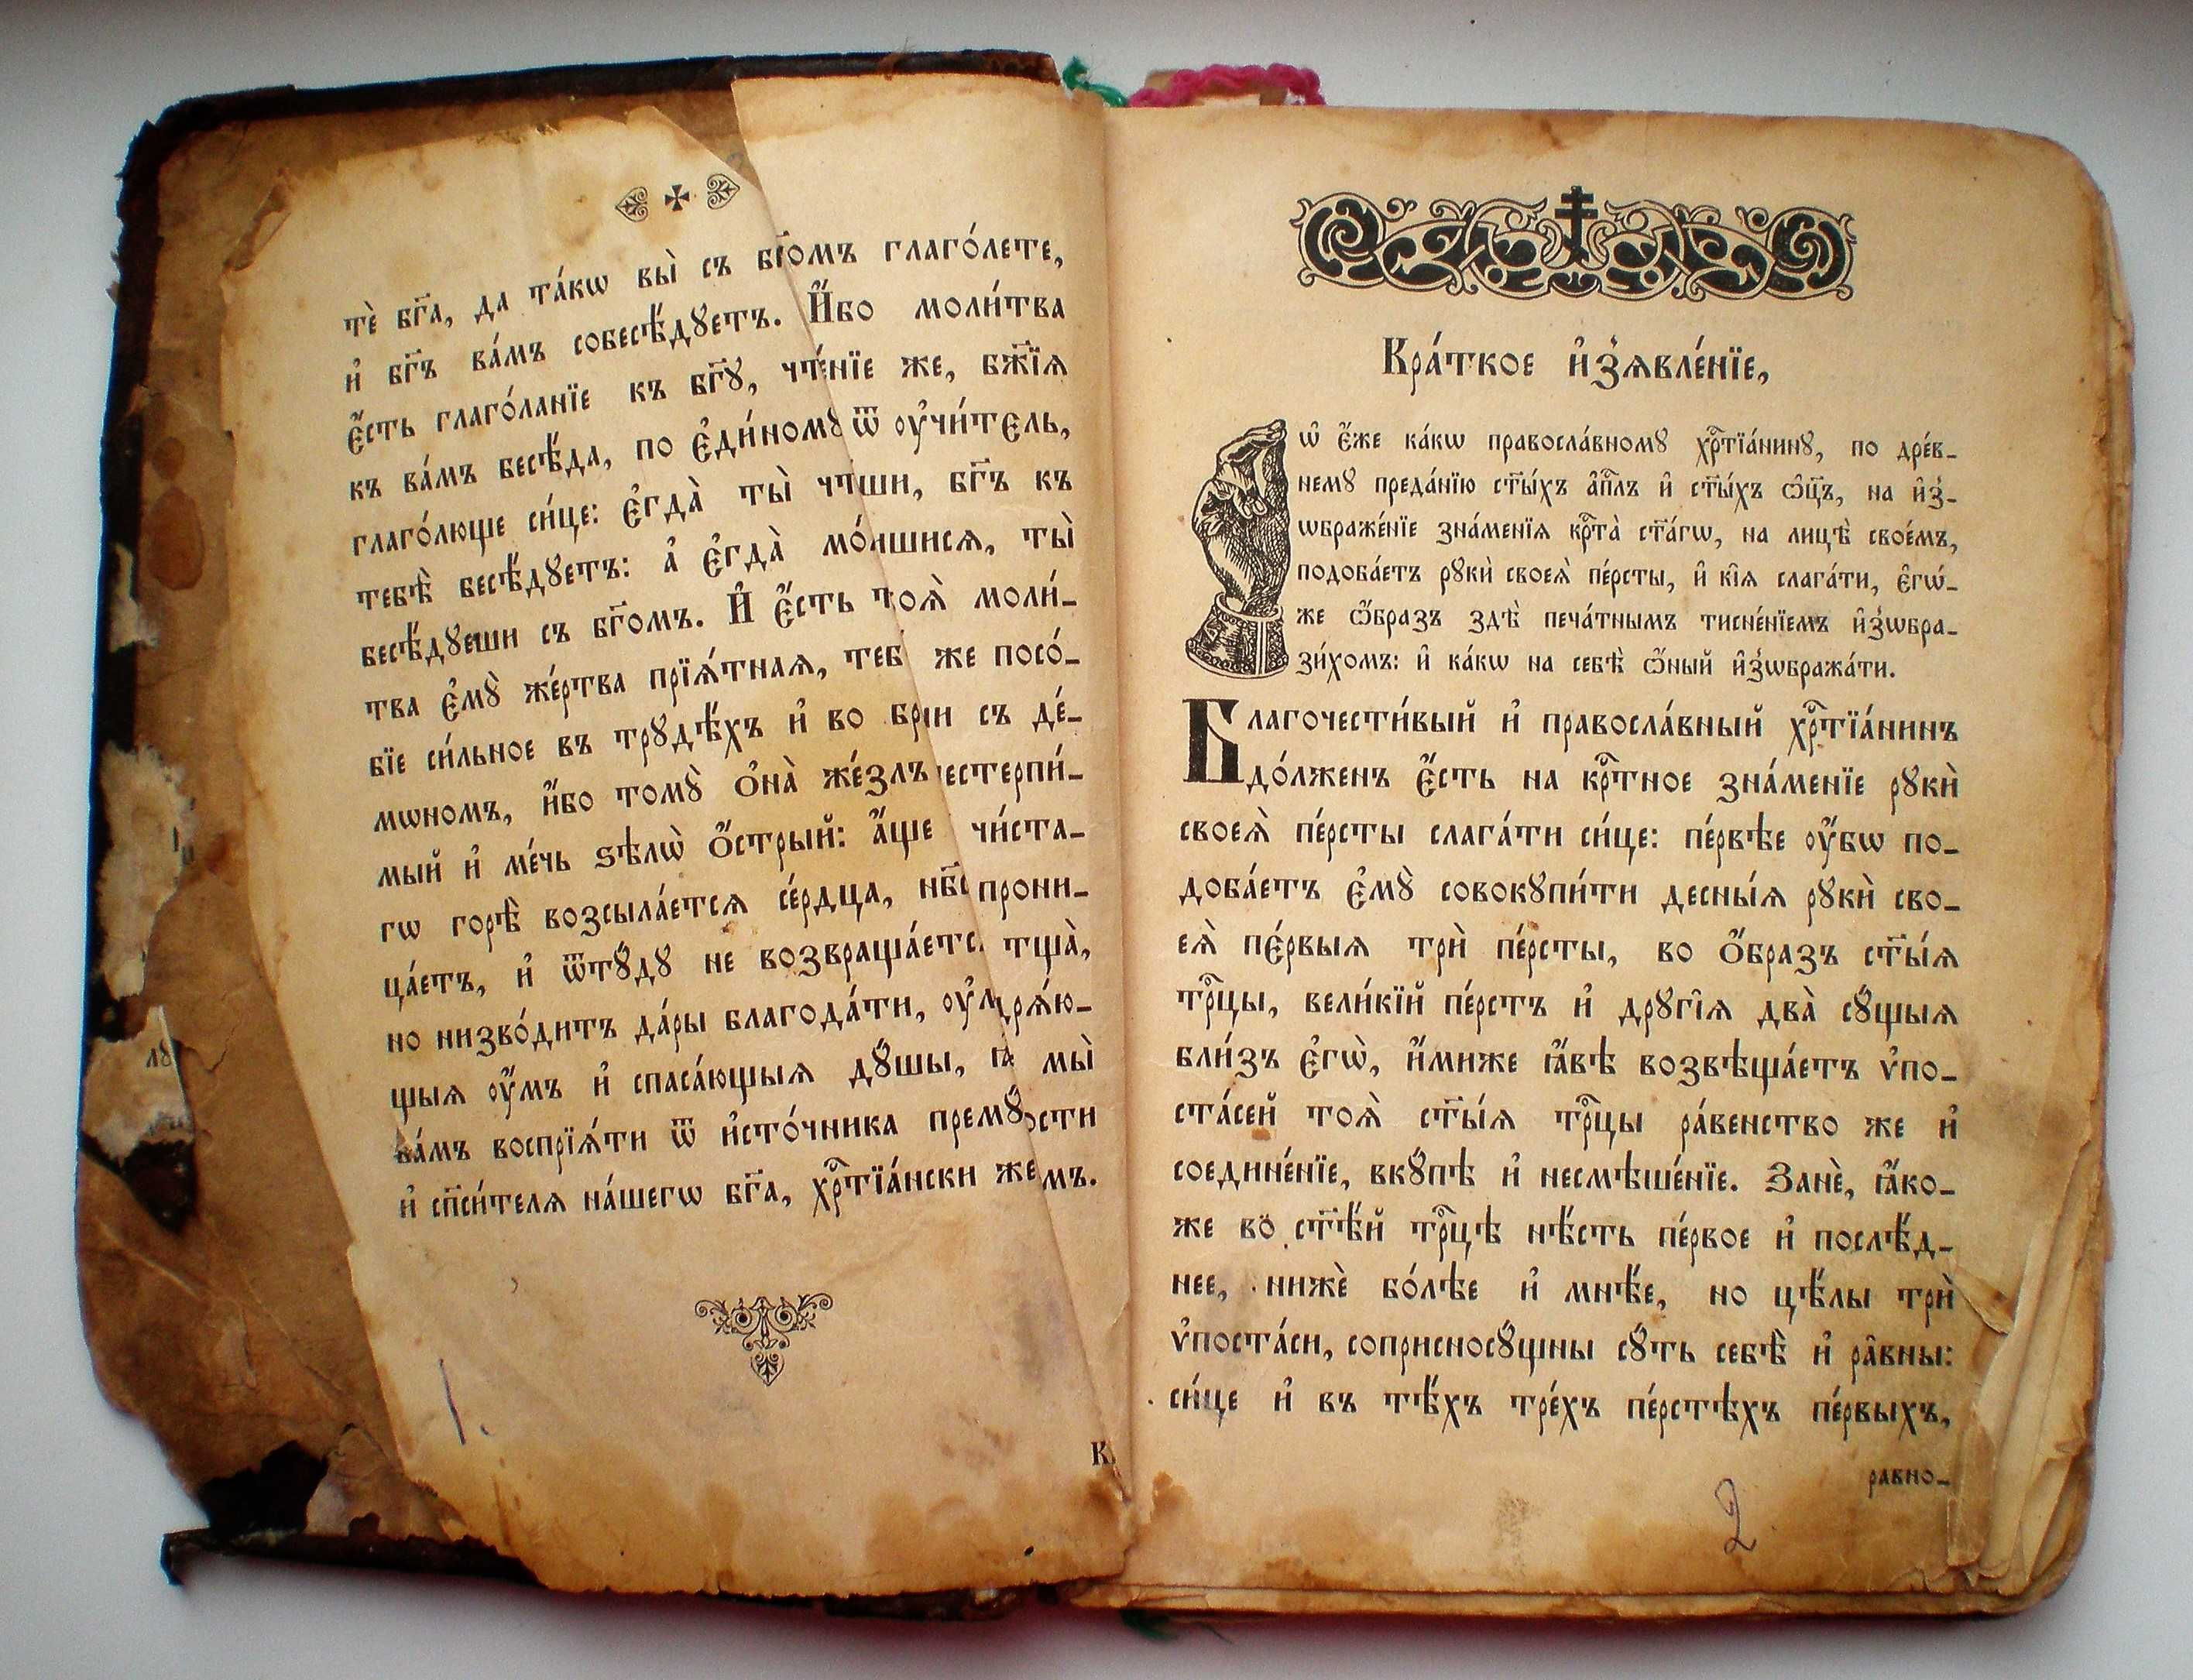 тѐ бг҃а, да та́кѡ вы̀ съ бг҃омъ глаго́лете,
и҆ бг҃ъ ва́мъ собесѣ́дꙋетъ. И҆́бо моли́тва
є҆́сть глаго́ланїе къ бг҃ꙋ, чте́нїе же, бж҃їѧ
къ ва́мъ бесѣ́да, по є҆ди́номꙋ ѿ оу҆чи́тель,
глаго́люще си́це: є҆гда̀ ты̀ чтши, бг҃ъ къ
тебѣ̀ бесѣ́дꙋетъ: а҆ є҆гда̀ мо́ишисѧ, ты̀
бесѣ́дꙋеши съ бг҃омъ. И҆ є҆́сть тоѧ̀ моли́-
тва є҆мꙋ̀ же́ртва прїѧ́тнаѧ, теб же посо́-
бїе си́льное въ трꙋдѣ́хъ и҆ во бра́ни съ де́-
мѡномъ, и҆́бо томꙋ̀ ѻ҆на̀ же́злъ нестерпи́-
мый и҆ ме́чь ѕѣлѡ̀ ѻ҆́стрый: а҆́ще чи́ста-
гѡ горѣ̀ возсыла́етсѧ се́рдца, нб҃о прони-
ца́етъ, и҆ ѿтꙋ́дꙋ не возвраща́етсѧ тща̀,
но низво́дитъ да́ры благода́ти, оу҆мꙋдрѧ́ю-
щыѧ оу҆́мъ и҆ спаса́ющыѧ дꙋ́шы, мы̀
ва́мъ воспрїѧ́ти ѿ и҆сто́чника премꙋ́дрости
и҆ сп҃си́телѧ на́шегѡ бг҃а, хрⷭ҇тїа́нски желаемъ.
1.
К
Кра́ткое и҆з̾ѧвле́нїе,
ѡ҆ є҆́же ка́кѡ правосла́вномꙋ хрⷭ҇тїа́нинꙋ, по дре́в-
немꙋ преда́нїю ст҃ы́хъ а҆пⷭ҇лъ и҆ ст҃ы́хъ ѻ҆ц҃ъ, на и҆з̾-
ѡбраже́нїе зна́менїѧ крⷭ҇та̀ ст҃а́гѡ, на лицѣ̀ свое́мъ,
подоба́етъ рꙋкѝ своеѧ̀ пе́рсты, и҆ кі̑ѧ слага́ти, є҆гѡ́-
же ѻ҆́бразъ здѣ̀ печа́тнымъ тисне́нїемъ и҆з̾ѡбра-
зи́хомъ: и҆ ка́кѡ на себѣ̀ ѻ҆́ный и҆з̾ѡбража́ти.
Благочести́вый и҆ правосла́вный хрⷭ҇тїа́нинъ
до́лженъ є҆́сть на крⷭ҇тное зна́менїе рꙋкѝ
своеѧ̀ пе́рсты слага́ти си́це: пе́рвѣе оу҆́бѡ по-
доба́етъ є҆мꙋ̀ совокꙋпи́ти десны́ѧ рꙋкѝ сво-
еѧ̀ пе́рвыѧ трѝ пе́рсты, во ѻ҆́бразъ ст҃ы́ѧ
трⷪ҇цы, вели́кїй пе́рстъ и҆ дрꙋгі̑ѧ два̀ сꙋ́щыѧ
бли́зъ є҆гѡ̀, и҆́миже ꙗ҆́вѣ возвѣща́етъ ѵ҆по-
ста́сей тоѧ̀ ст҃ы́ѧ трⷪ҇цы ра́венство же и҆
соедине́нїе, вкꙋ́пѣ и҆ несмѣше́нїе. Занѐ, ꙗ҆́ко-
же во ст҃ѣ́й трⷪ҇цѣ нѣ́сть пе́рвое и҆ послѣ́д-
нее, нижѐ бо́лѣе и҆ мнѣ́е, но цѣ́лы трѝ
ѵ҆поста́си, соприсносꙋ́щны сꙋ́ть себѣ̀ и҆ ра̑вны:
си́це и҆ въ тѣ́хъ тре́хъ пе́рстѣхъ пе́рвыхъ,
равно-
2